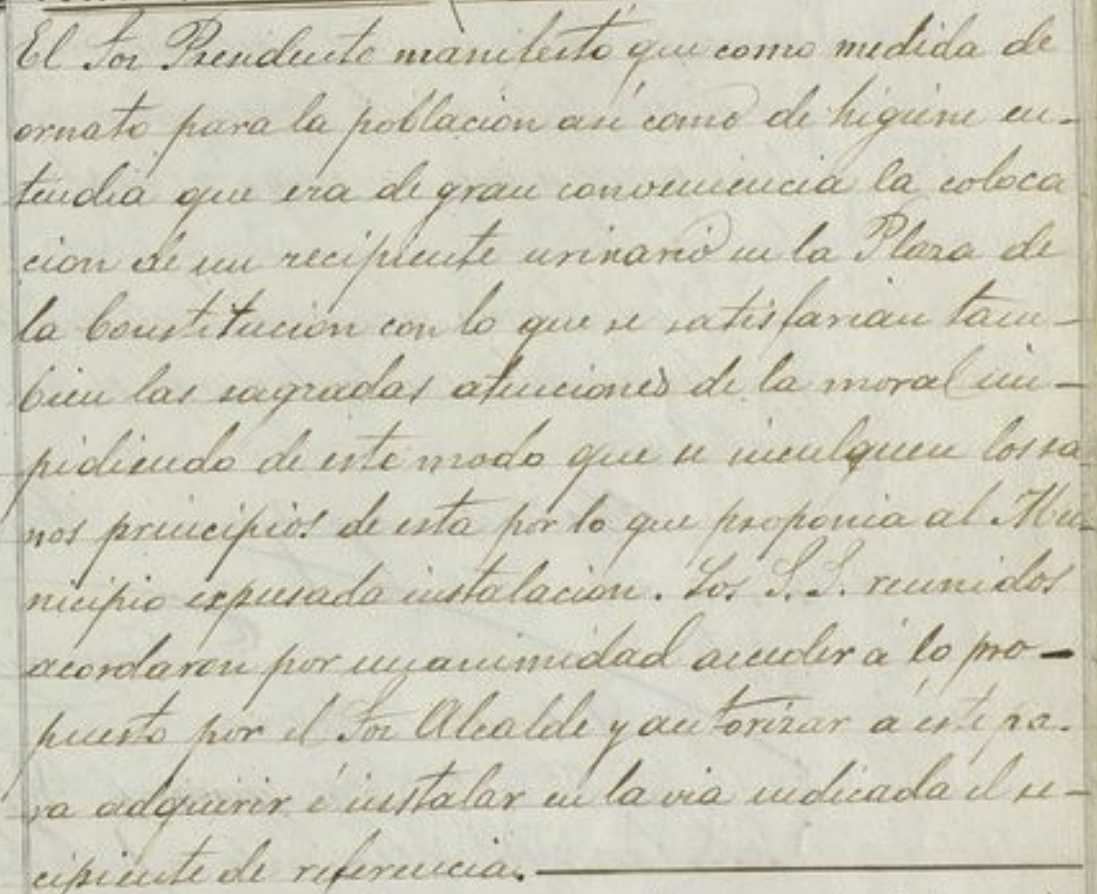 El Sor Presidente manifestó que como medida de
ornato para la poblacion así como de higiene en-
tendia que era de gran conveniencia la coloca
cion de un recipiente urinario en la Plaza de
la Constitucion con lo que se satisfarian tam-
bien las sagradas atenciones de la moral im-
pidiendo de este modo que se inculquen los sa
nos principios de esta por lo que proponia al Mu-
nicipio expresada instalacion. Los S.S. reunidos
acordaron por unanimidad acceder á lo pro-
puesto por el Sor Alcalde y autorizar á este pa-
ra adquirir é instalar en la via indicada el re-
cipiente de referencia.